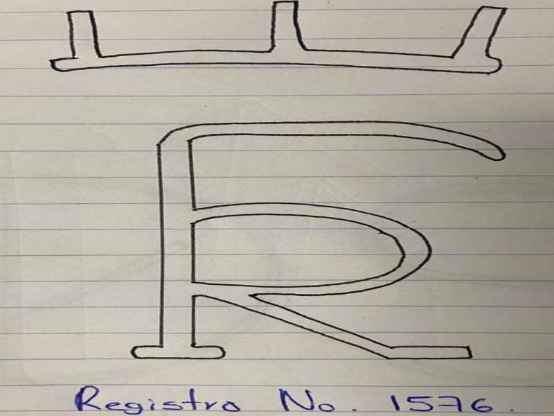 Registro No. 1576